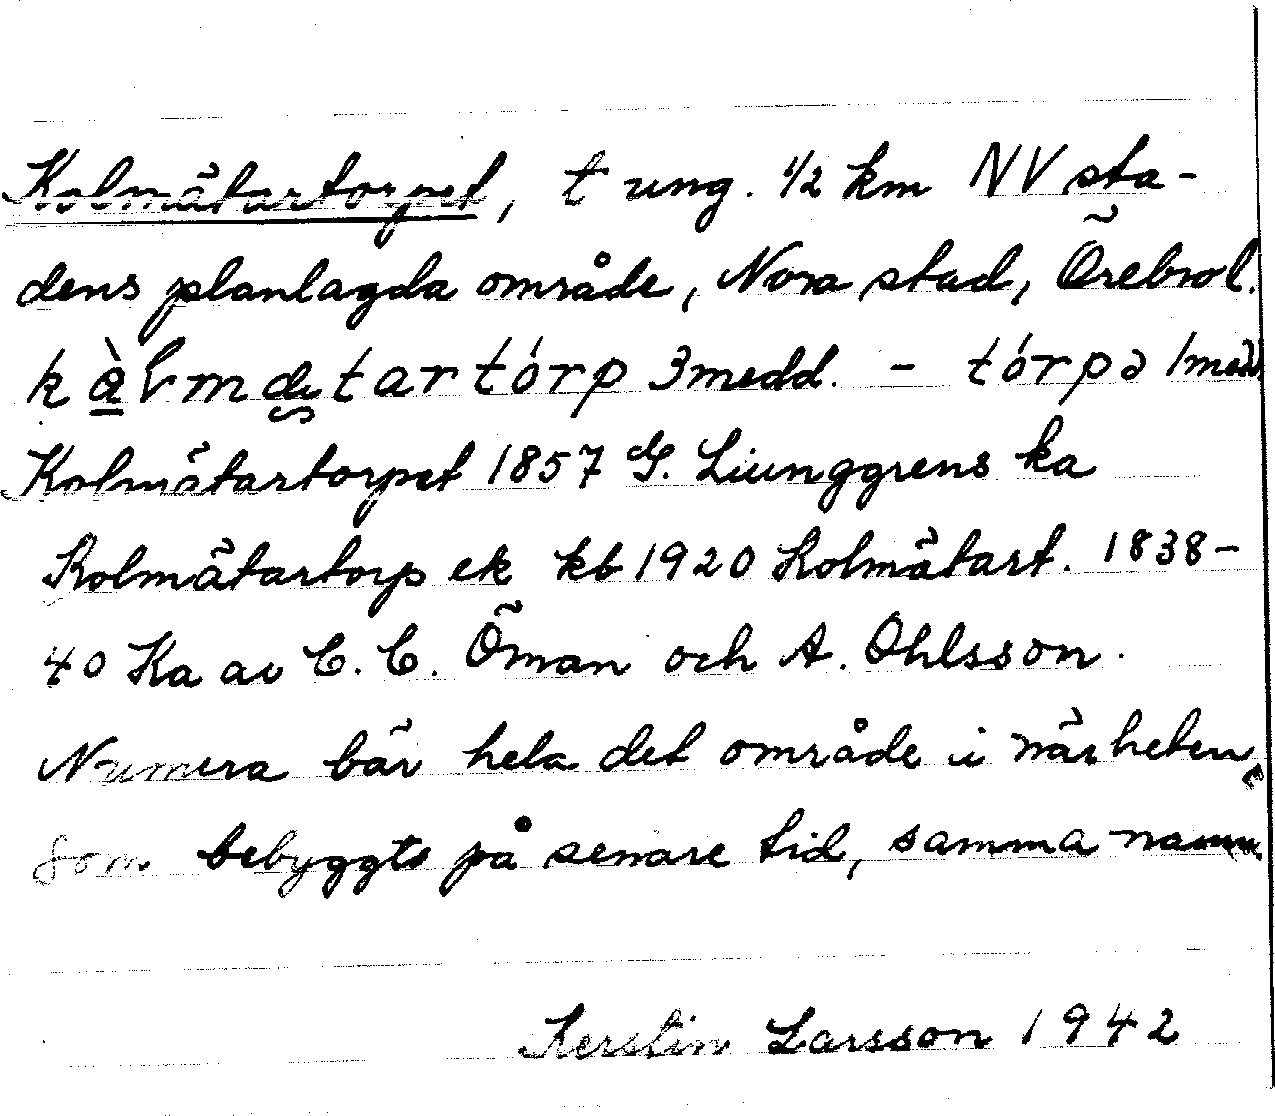 Kolmätartorpet, t ung. 1/2 km NV sta-
dens planlagda område, Nora stad, Örebro l.
tartórp 3 medd. - tórpə 1 med
Kolmätartorpet 1857 G. Liunggrens ka
Kolmätartorp ek kb 1920 Kolmätart. 1838-
40 Ka av C. C. Öman och A. Ohlsson.
Numera bär hela det område i närheten,
som bebyggts på senare tid, samma namn.
Kerstin Larsson 1942